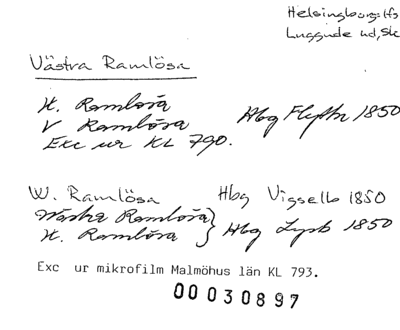 Helsingborgs lfs
Luggude hd, Sk
Västra Ramlösa
W. Ramlösa
V Ramlösa
Hbg Flyttn 1850
Exc ur KL 790.
W. Ramlösa Hbg Vigselb 1850
Westra Ramlösa
W. Ramlösa
Hbg Lysb 1850
Exc ur mikrofilm Malmöhus län KL 793.
00030897